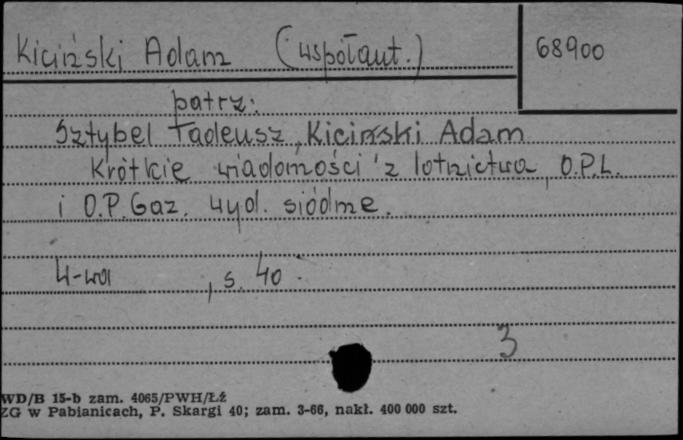 Kiciński Adam (współaut.)
68900
patrz:
Sztybel Tadeusz, Kiciński Adam
Krótkie wiadomości z lotnictwa, O.P.L.
i O.P.Gaz. wyd. siódme.
W-wa , s. 40.
3
WD/B 15-b zam. 4065/PWH/Łź
ZG w Pabianicach, P. Skargi 40; zam. 3-66, nakł. 400 000 szt.